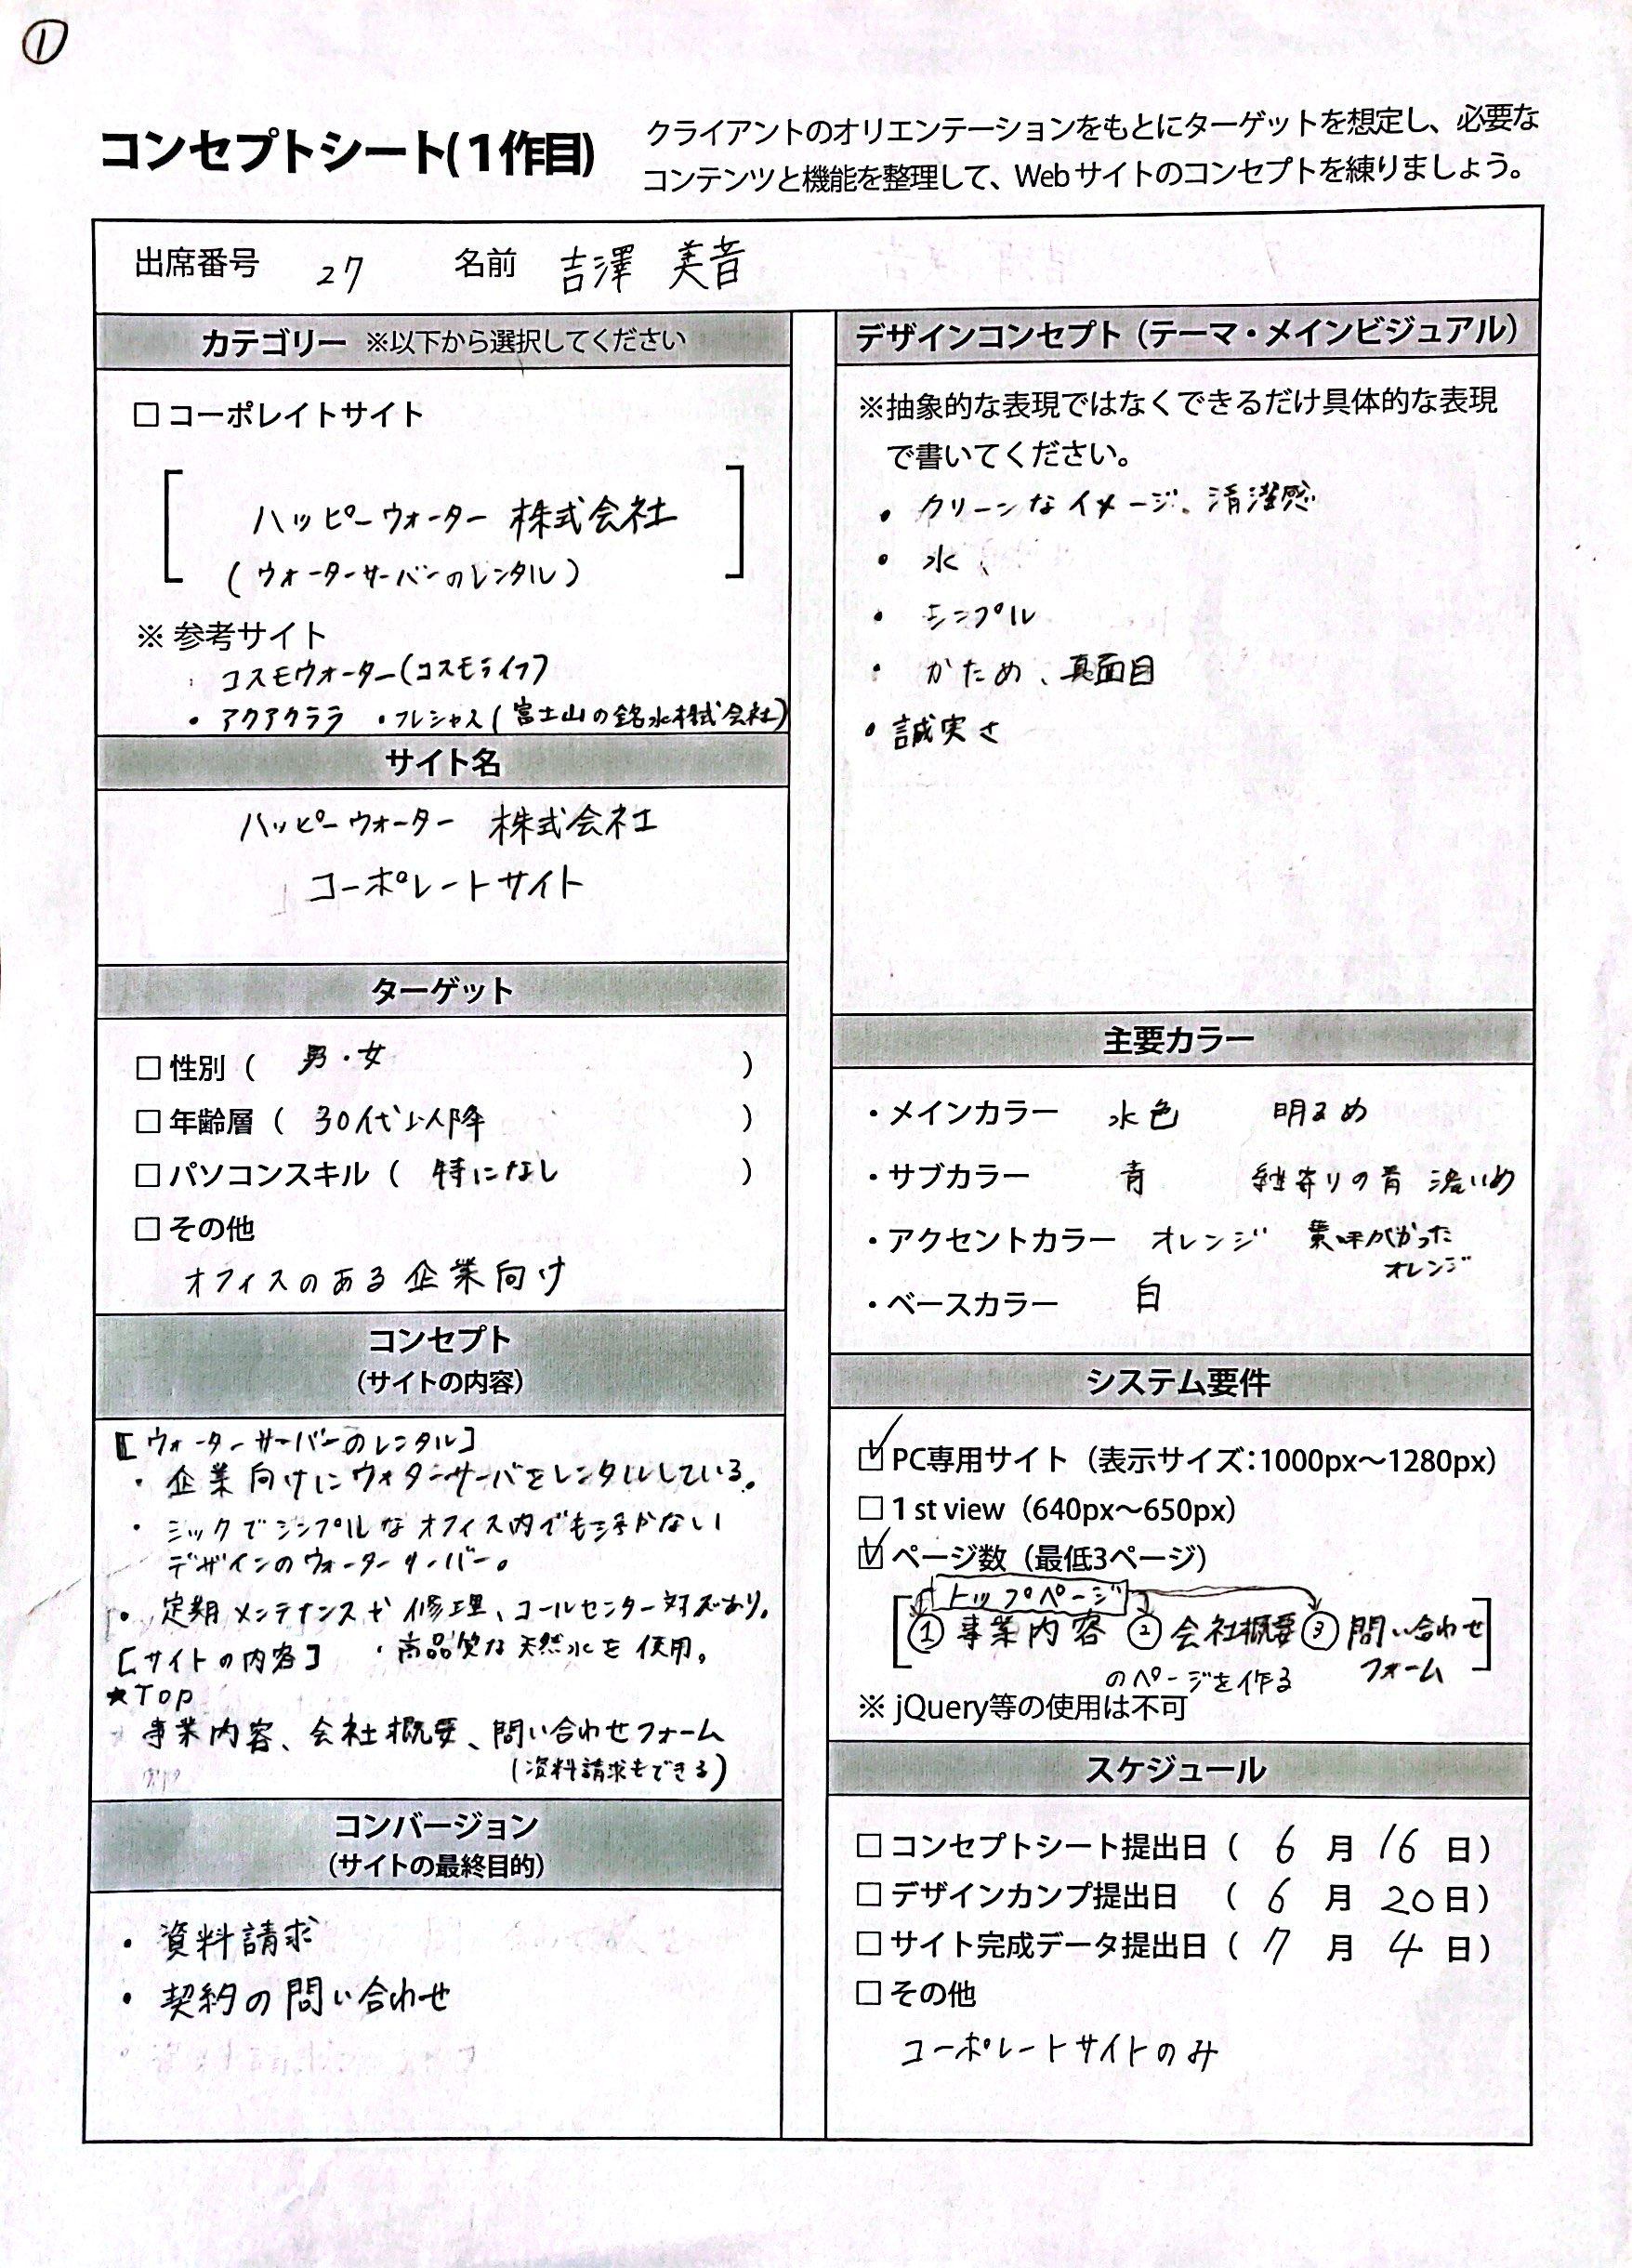 ①
コンセプトシート(1作目)
クライアントのオリエンテーションをもとにターゲットを想定し、必要な
コンテンツと機能を整理して、Webサイトのコンセプトを練りましょう。
出席番号 27 名前 吉澤 美音
カテゴリー ※以下から選択してください
□ コーポレイトサイト
ハッピーウォーター 株式会社
(ウォーターサーバーのレンタル)
※ 参考サイト
コスモウォーター(コスモライフ)
・アクアクララ ・フレシャス(富士山の銘水株式会社)
サイト名
ハッピーウォーター 株式会社
コーポレートサイト
ターゲット
□ 性別 ( 男・女 )
□ 年齢層 ( 30代以降 )
□ パソコンスキル ( 特になし )
□ その他
オフィスのある企業向け
コンセプト
(サイトの内容)
[ウォーターサーバーのレンタル]
・企業向けにウォーターサーバをレンタルしている。
・シックでシンプルなオフィス内でも浮かない
デザインのウォーターサーバー。
・定期メンテナンスや修理、コールセンター対応あり。
・高品質な天然水を使用。
[サイトの内容]
★TOP
事業内容、会社概要、問い合わせフォーム
(資料請求もできる)
コンバージョン
(サイトの最終目的)
・資料請求
・契約の問い合わせ
デザインコンセプト(テーマ・メインビジュアル)
※抽象的な表現ではなくできるだけ具体的な表現
で書いてください。
・クリーンなイメージ、清潔感
・水
・シンプル
・かため、真面目
・誠実さ
主要カラー
・メインカラー 水色 明るめ
・サブカラー 青 寄りの青 濃いめ
・アクセントカラー オレンジ 黄味がかった
オレンジ
・ベースカラー 白
システム要件
☑ PC専用サイト(表示サイズ:1000px～1280px)
□ 1 st view(640px～650px)
☑ ページ数(最低3ページ)
トップページ
[① 事業内容 ② 会社概要 ③ 問い合わせ]
フォーム
のページを作る
※ jQuery等の使用は不可
スケジュール
□ コンセプトシート提出日 ( 6 月 16 日)
□ デザインカンプ提出日 ( 6 月 20 日)
□ サイト完成データ提出日 ( 7 月 4 日)
□ その他
コーポレートサイトのみ